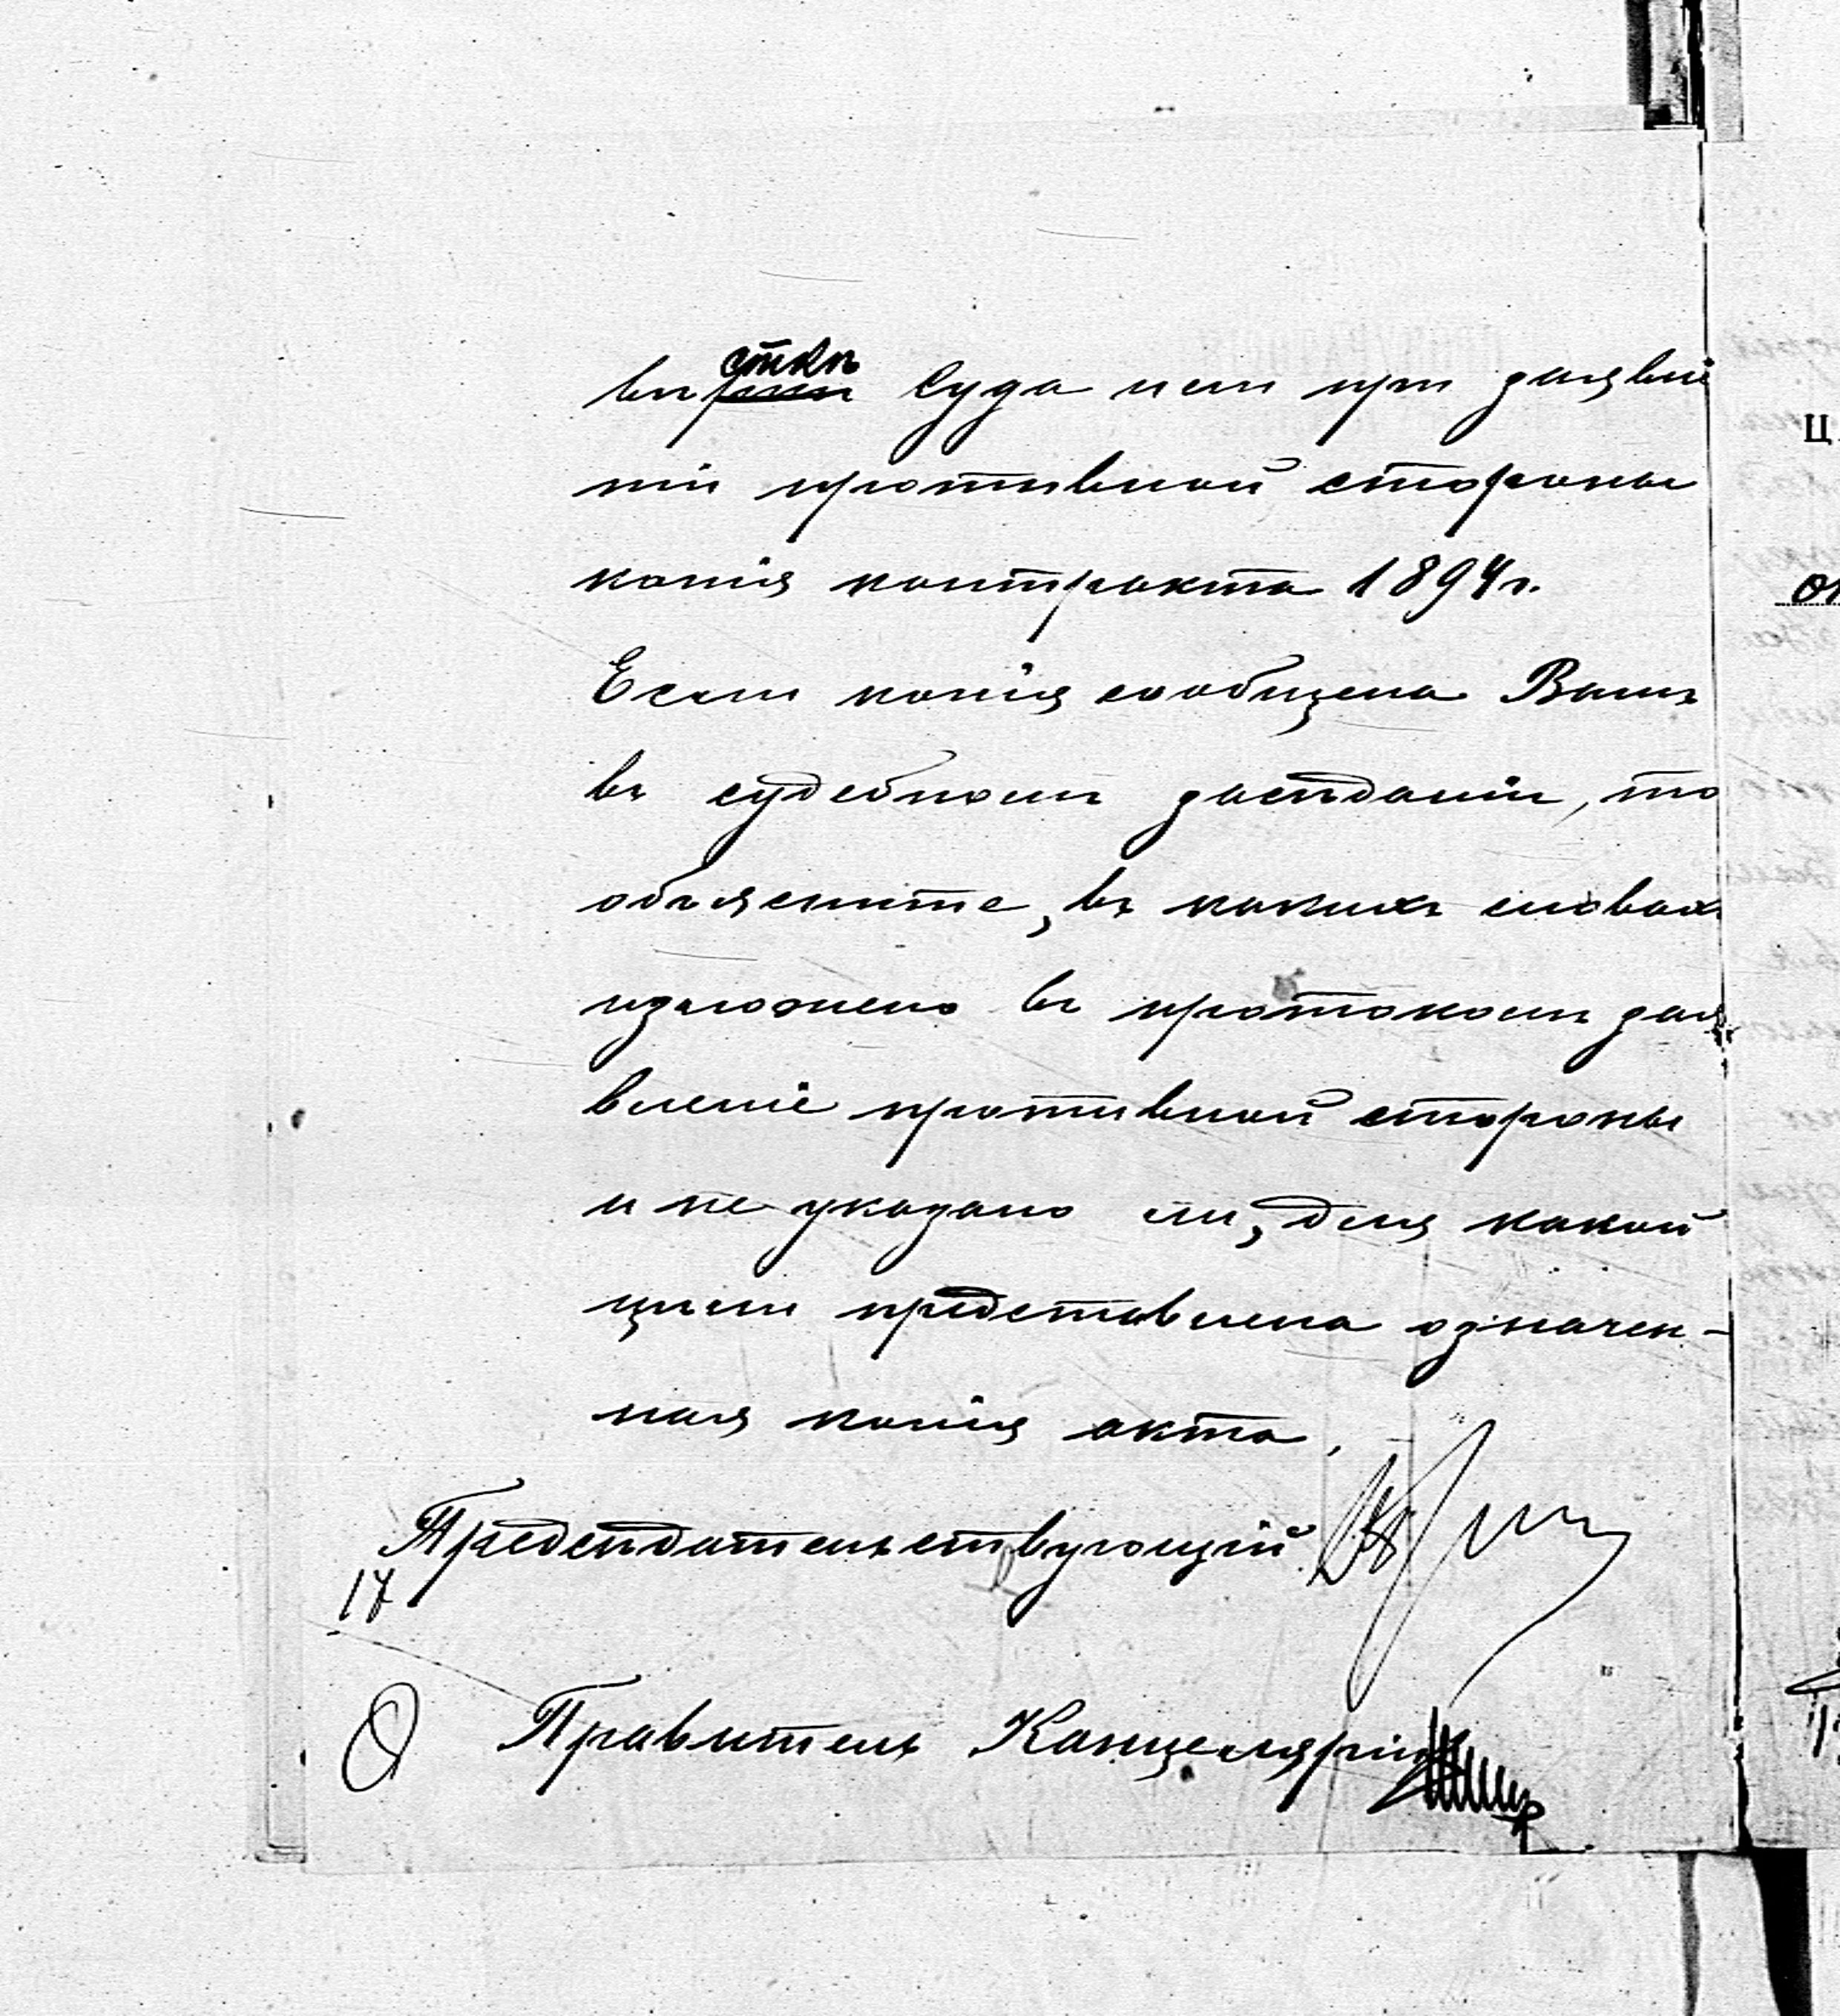 вѣсткѣ Суда или при заявле
ніи противной стороны
копія контракта 1894 г.
Если копія сообщена Вамъ
въ судебномъ засѣданіи, то
объясните, въ какихъ словахъ
изложено въ протоколѣ зая
вленіе противной стороны
и не указано ли, для какой
цѣли представлена означен-
ная копія акта.
Предсѣдательствующій
17
Правитель Канцеляріи
Ц.